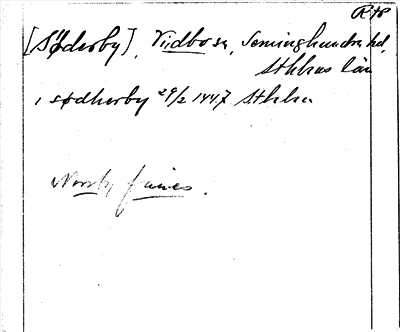 R48
[Söderby], Vidbo sn, Seminghundra hd,
Sthlms län
i södherby 29/2 1447 Sthlm
Norrby finnes.